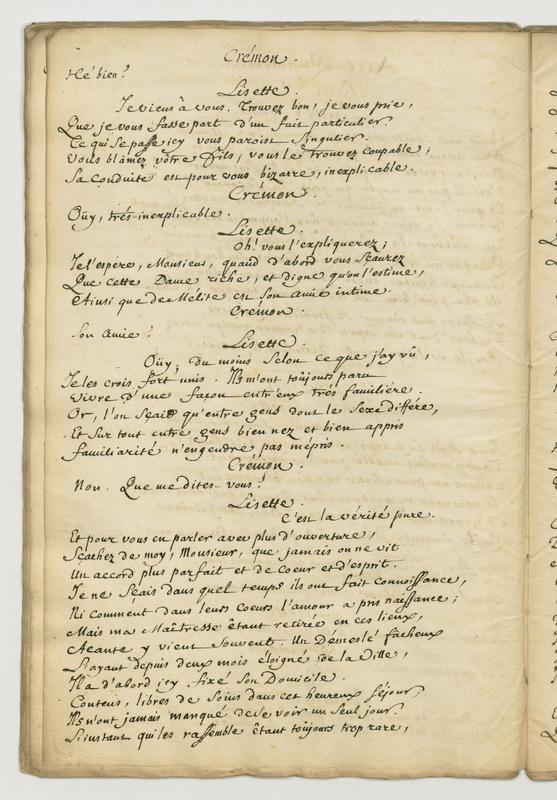 Crémon.
Hé bien?
Lisette.
Je viens à vous. Trouvez bon, je vous prie,
Que je vous fasse part d'un fait particulier.
Ce qui se passe icy vous paroist singulier.
Vous blâmez vôtre fils, vous le trouvez coupable;
Sa conduite est pour vous bizarre, inexplicable.
Crémon.
Oüy, trés-inexplicable.
Lisette.
Oh! vous l'expliquerez;
Je l'espère, Monsieur, quand d'abord vous sçaurez
Que cette Dame riche, et digne qu'on l'estime,
Ainsi que de Mélite est son amie intime.
Crémon.
Son Amie?
Lisette.
Oüy; du moins selon ce que j'ay vû,
Je les crois fort unis. Ils m'ont toûjours paru
Vivre d'une façon entr'eux trés familiére.
Or, l'on sçait qu'entre gens dont le sexe différe,
Et sur tout entre gens bien nez et bien appris
Familiarité n'engendre pas mépris.
Crémon.
Non. Que me dites-vous!
Lisette.
C'est la vérité pure.
Et pour vous en parler avec plus d'ouverture,
Sçachez de moy, Monsieur, que jamais on ne vit
Un accord plus parfait et de coeur et d'esprit.
Je ne sçais dans quel temps ils ont fait connoissance,
Ni comment dans leurs coeurs l'amour a pris naissance;
Mais ma Maîtresse êtant retirée en ces lieux,
Acante y vient souvent. Un Démeslé fâcheux
L'ayant depuis deux mois éloigné de la Ville,
Il a d'abord icy fixé son Domicile.
Contens, libres de soins dans cet heureux séjour,
Ils n'ont jamais manqué de se voir un seul jour.
L'instant qui les rassemble êtant toûjours trop rare,